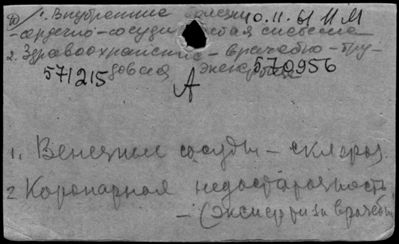 1. Внутренние болезни 10.11.61 НМ
-сердечно-сосудистая система
2. Здравоохранение - врачебно-тру-
571215 довая экспертиза 570956
А
1. Венечные сосуды - склероз
2 Коронарная недостаточность
- (экспертиза врачебн